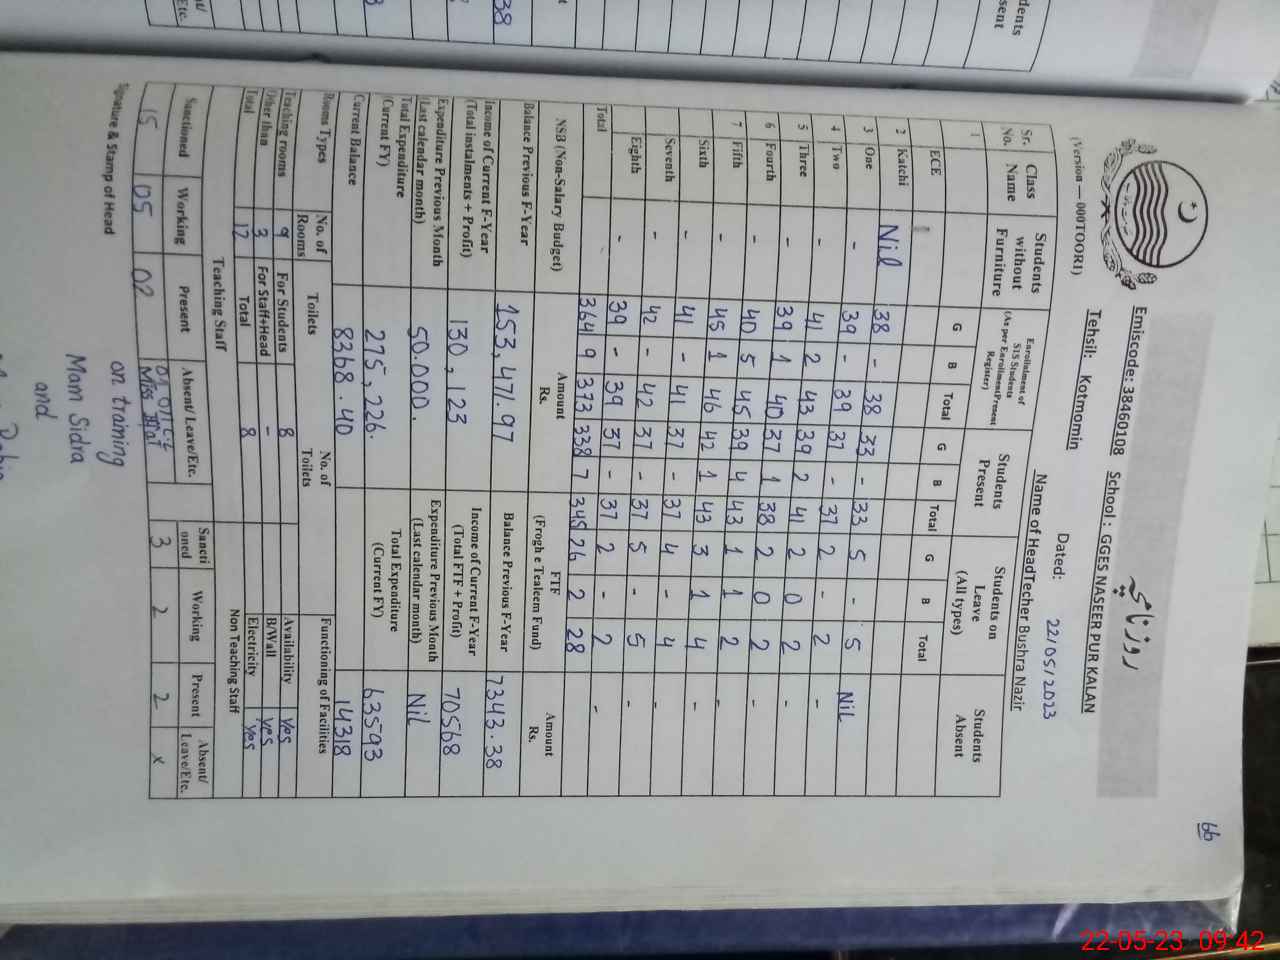 66
روزنامچہ
Emiscode: 38460108 School : GGES NASEER PUR KALAN
Tehsil: Kotmomin Dated: 22/05/2023
(Version — 000TOOR1) Name of HeadTecher Bushra Nazir
Sr. No. Class Name Students without Furniture Enrollment of SIS Students (As per Enrollment Present Register) Students Present Students on Leave (All types) Students Absent
G B Total G B Total G B Total
1 ECE
2 Katchi Nil 38 - 38 33 - 33 5 - 5 Nil
3 One - 39 - 39 37 - 37 2 - 2 -
4 Two - 41 2 43 39 2 41 2 0 2 -
5 Three - 39 1 40 37 1 38 2 0 2 -
6 Fourth - 40 5 45 39 4 43 1 1 2 -
7 Fifth - 45 1 46 42 1 43 3 1 4 -
Sixth - 41 - 41 37 - 37 4 - 4 -
Seventh - 42 - 42 37 - 37 5 - 5 -
Eighth - 39 - 39 37 - 37 2 - 2 -
Total 364 9 373 338 7 345 26 2 28
NSB (Non-Salary Budget) Amount Rs. FTF (Frogh e Tealeem Fund) Amount Rs.
Balance Previous F-Year 153,471.97 Balance Previous F-Year 7343.38
Income of Current F-Year (Total instalments + Profit) 130,123 Income of Current F-Year (Total FTF + Profit) 70568
Expenditure Previous Month (Last calendar month) 50.000. Expenditure Previous Month (Last calendar month) Nil
Total Expenditure (Current FY) 275,226. Total Expenditure (Current FY) 63593
Current Balance 8368.40 14318
Rooms Types No. of Rooms Toilets No. of Toilets Functioning of Facilities
Teaching rooms 9 For Students 8 Availability Yes
Other than 3 For Staff+Head - B/Wall Yes
Total 12 Total 8 Electricity Yes
Teaching Staff Non Teaching Staff
Sanctioned Working Present Absent/ Leave/Etc. Sancti oned Working Present Absent/ Leave/Etc.
15 05 02 Miss 3 2 2 x
Signature & Stamp of Head on training
Mam Sidra
and
22-05-23 09:42